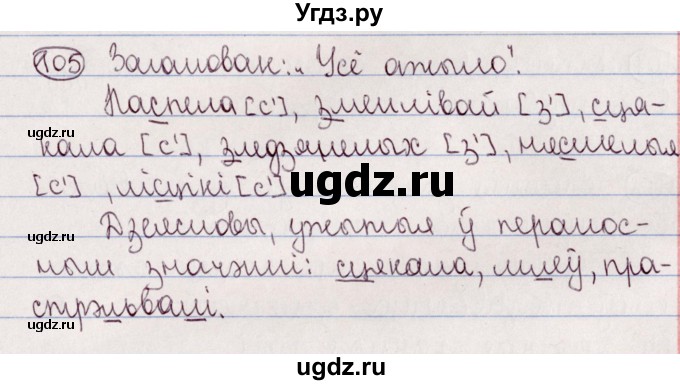 Угдз.ру
105 Загаловак: „Усё ажыло".
Паспела [с'], зменлівай [з'], сця-
кала [с'], зледзянелых [з'], нясмелыя
[с'], лісцікі [с']
Дзеясловы, ужытыя ў перанос-
ным значэнні: сцякала, млеў, пра-
стрэльвалі.
ugdz.ru
ugdz.ru
ugdz.ru
ugdz.ru
ugdz.ru
ugdz.ru
ugdz.ru
ugdz.ru